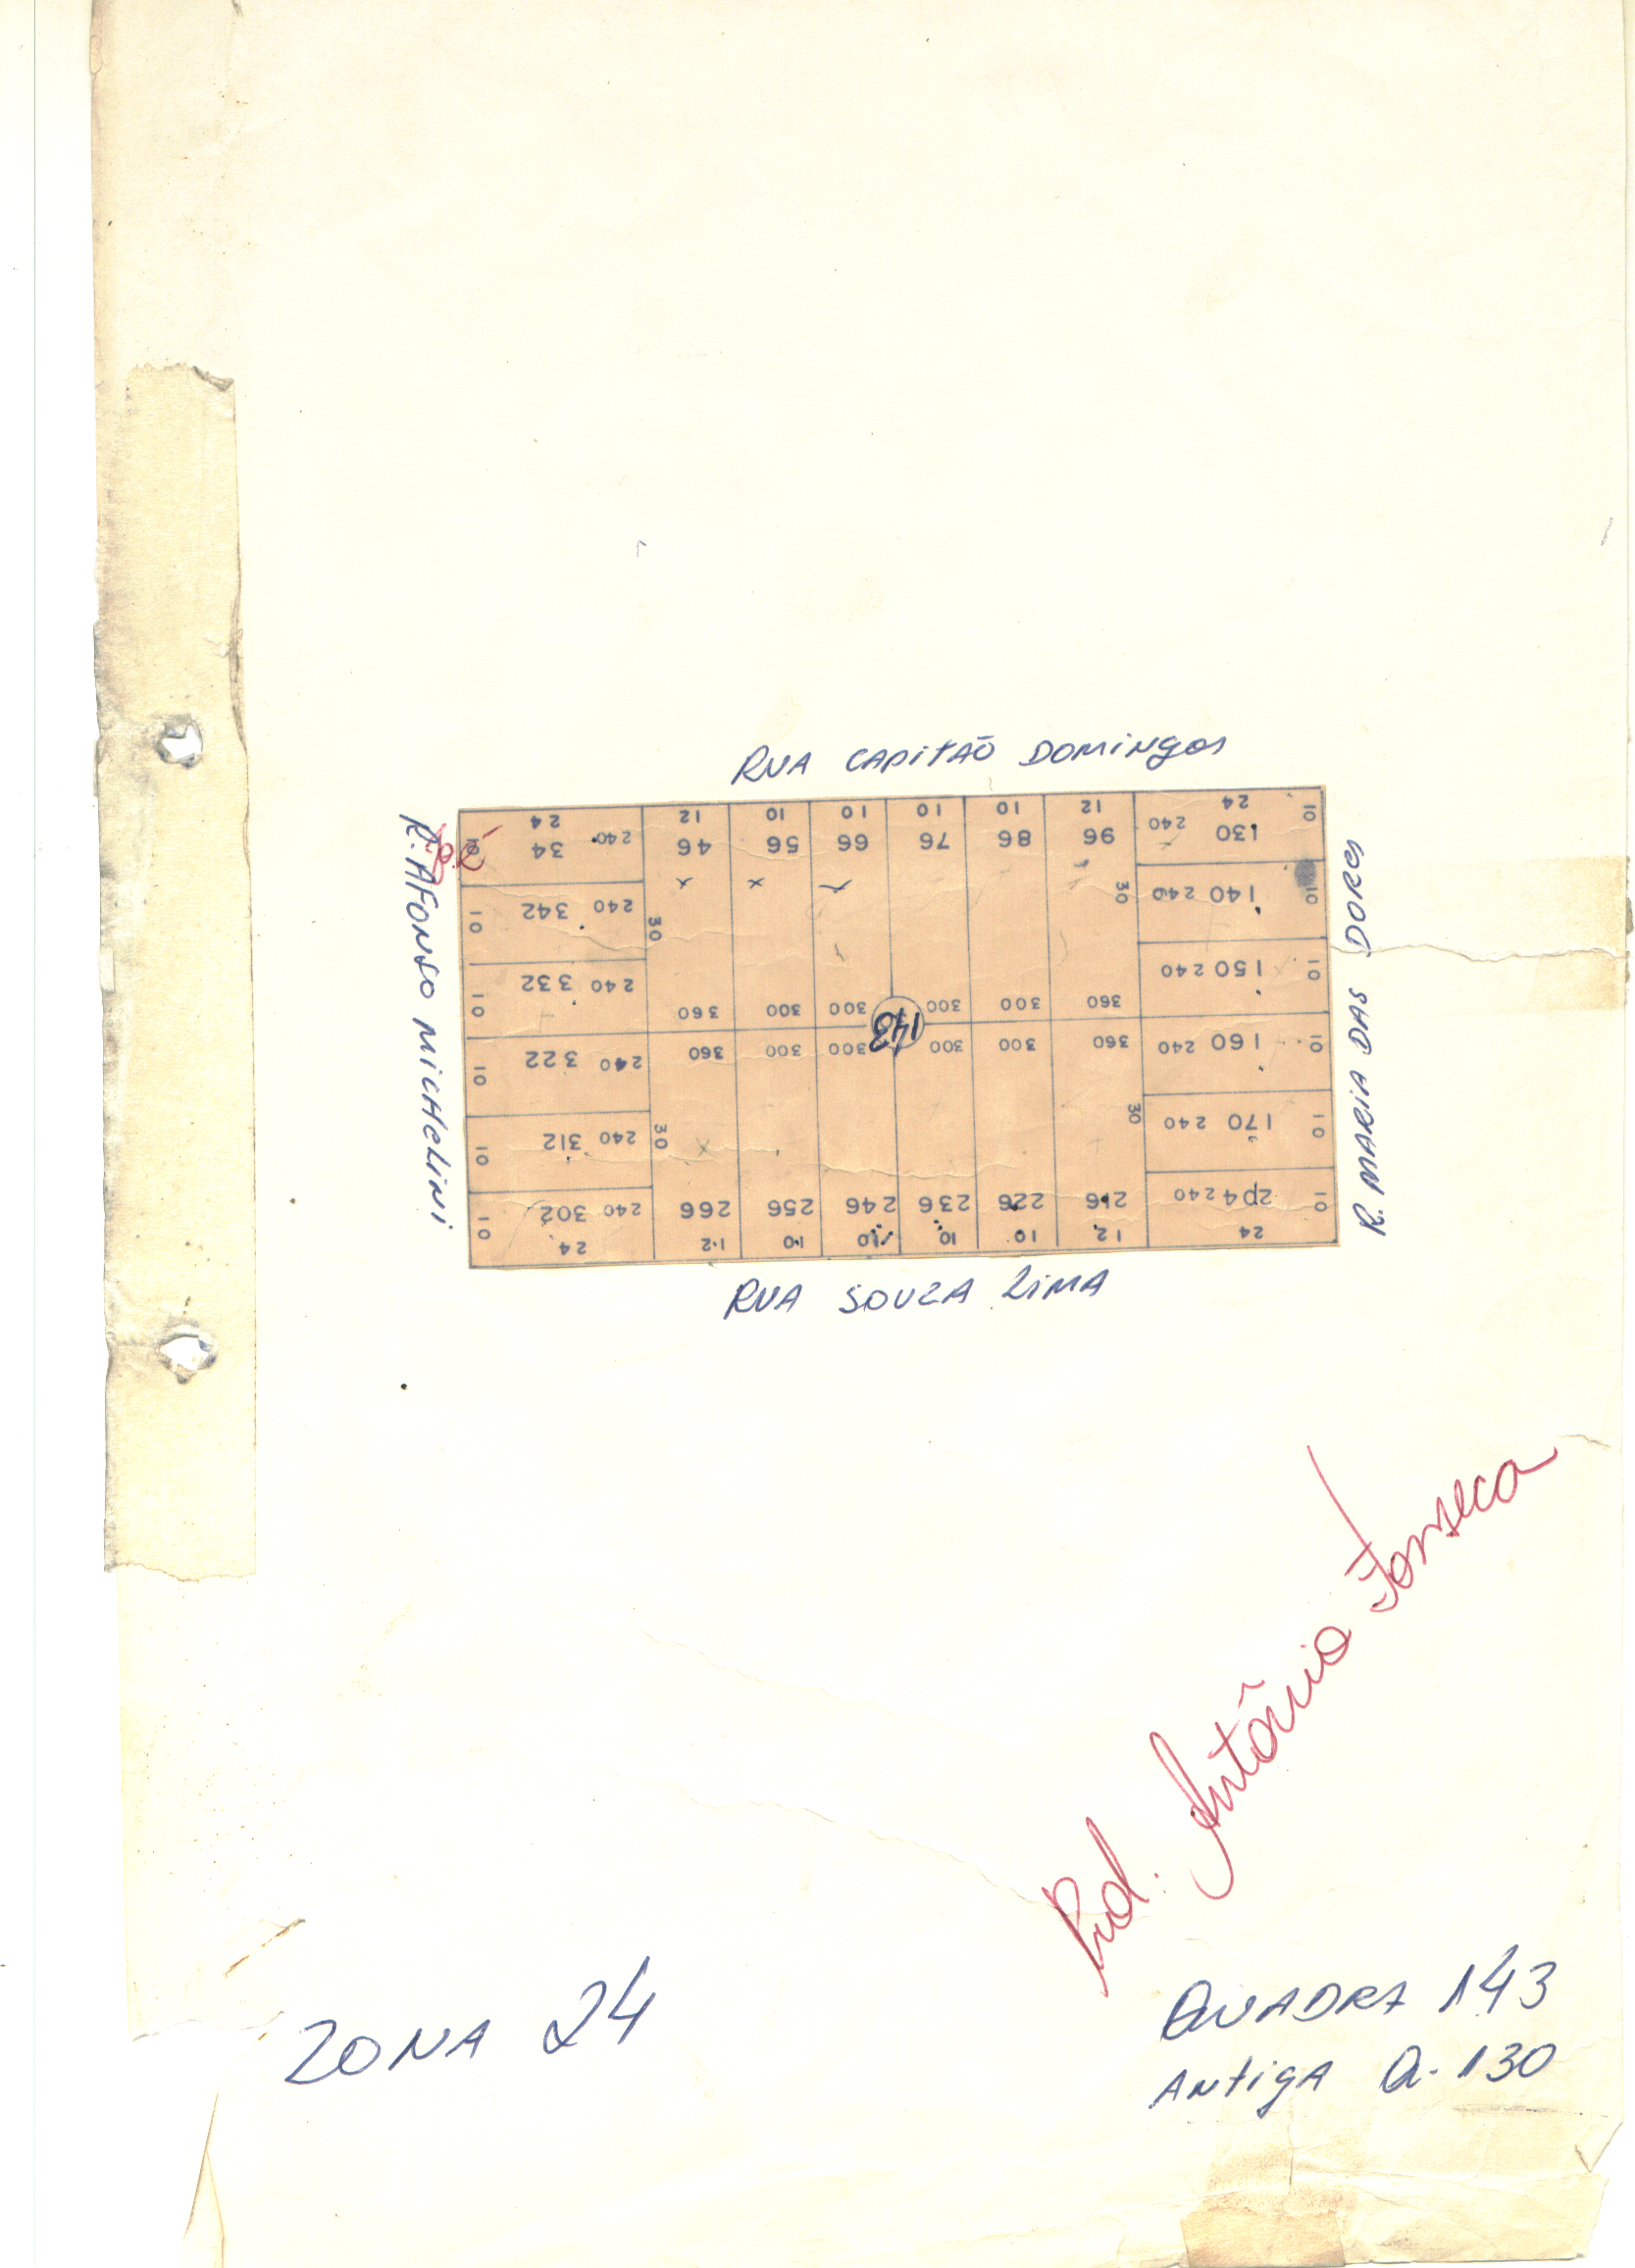 RUA CAPITÃO DOMINGOS
R. AFONSO MICHELINI
R. MARIA DAS DORES
24 12 10 10 10 10 12 24
10 34 240 46 56 66 76 86 96 240 130 10
10 342 240 30 30 240 140 10
10 332 240 240 150 10
360 300 300 300 300 360
143
360 300 300 300 300 360
10 322 240 240 160 10
10 312 240 30 30 240 170 10
10 302 240 266 256 246 236 226 216 240 204 10
24 12 10 10 10 10 12 24
RUA SOUZA LIMA
Antônio Fonseca
ZONA 24
QUADRA 143
ANTIGA Q. 130